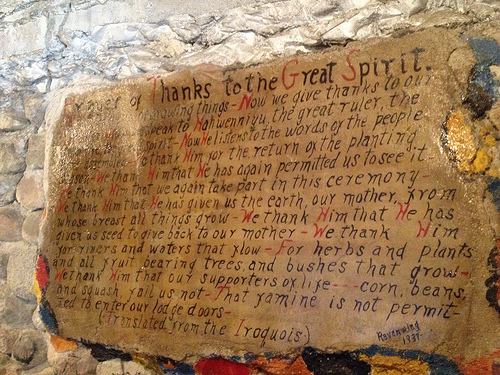 Prayer of Thanks to the Great Spirit.
growing things - Now we give thanks to our
speak to Hahwenniyu, the great ruler, the
spirit - Now He listens to the words of the people
assembled - We thank Him for the return of the planting
season - We thank Him that He has again permitted us to see it -
We thank Him that we again take part in this ceremony -
We thank Him that He has given us the earth, our mother, from
whose breast all things grow - We thank Him that He has
given us seed to give back to our mother - We thank Him
for rivers and waters that flow - For herbs and plants
and all fruit bearing trees and bushes that grow -
We thank Him that our supporters of life --- corn, beans,
and squash, fail us not - That famine is not permit-
ted to enter our lodge doors -
(Translated from the Iroquois)
Ravenwing
1937-